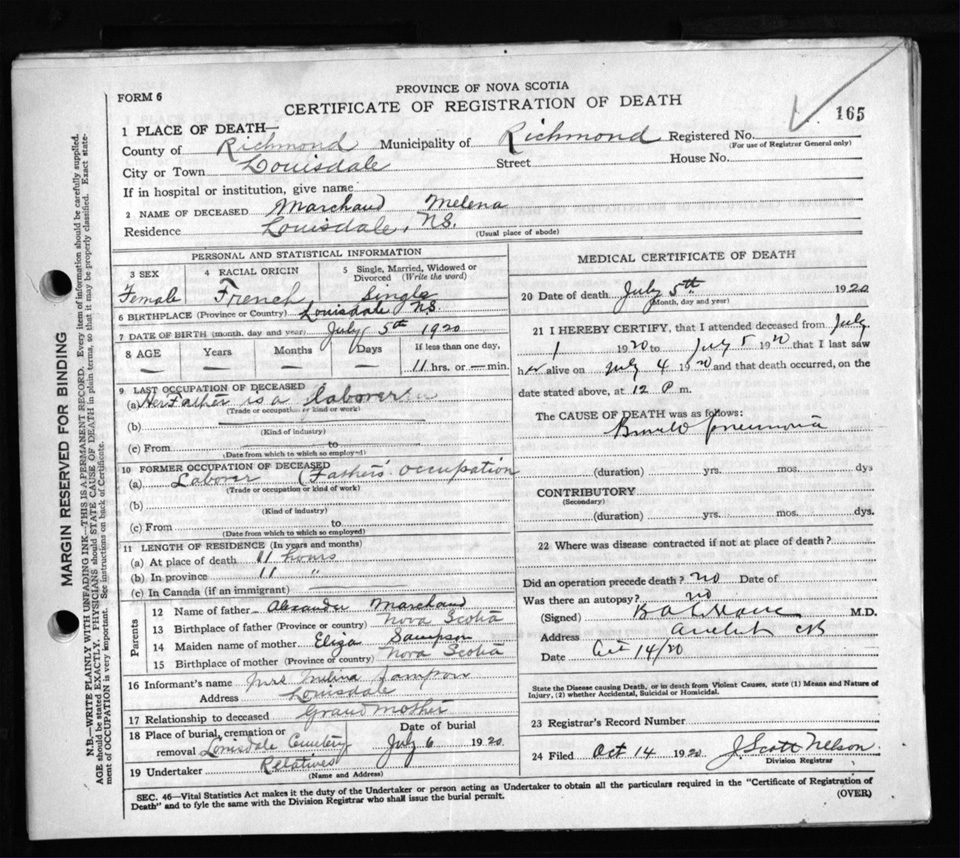 PROVINCE OF NOVA SCOTIA
FORM 6
CERTIFICATE OF REGISTRATION OF DEATH
165
1 PLACE OF DEATH—
County of Richmond Municipality of Richmond Registered No.
(For use of Registrar General only)
City or Town Louisdale Street House No.
If in hospital or institution, give name
2 NAME OF DECEASED Marchand Melena
Residence Louisdale, N.S.
(Usual place of abode)
PERSONAL AND STATISTICAL INFORMATION
3 SEX 4 RACIAL ORIGIN 5 Single, Married, Widowed or Divorced (Write the word)
Female French Single
6 BIRTHPLACE (Province or Country) Louisdale N.S.
7 DATE OF BIRTH (month, day and year) July 5th 1920
8 AGE Years Months Days If less than one day,
11 hrs. or — min.
9 LAST OCCUPATION OF DECEASED
(a) Her Father is a laborer
(Trade or occupation or kind of work)
(b)
(Kind of industry)
(c) From to
(Date from which to which so employed)
10 FORMER OCCUPATION OF DECEASED
(a) Laborer (Fathers' occupation
(Trade or occupation or kind of work)
(b)
(Kind of industry)
(c) From to
(Date from which to which so employed)
11 LENGTH OF RESIDENCE (In years and months)
(a) At place of death 11 hours
(b) In province 11 "
(c) In Canada (if an immigrant)
Parents
12 Name of father Alexander Marchand
13 Birthplace of father (Province or country) Nova Scotia
14 Maiden name of mother Eliza Sampson
15 Birthplace of mother (Province or country) Nova Scotia
16 Informant's name Mrs Sampson
Address Louisdale
17 Relationship to deceased Grand Mother
18 Place of burial, cremation or Date of burial
removal Louisdale Cemetery July 6 1920
19 Undertaker Relatives
(Name and Address)
MEDICAL CERTIFICATE OF DEATH
20 Date of death July 5th 1920
(Month, day and year)
21 I HEREBY CERTIFY, that I attended deceased from July
1 1920 to July 5 1920 that I last saw
her alive on July 4 1920 and that death occurred, on the
date stated above, at 12 P m.
The CAUSE OF DEATH was as follows:
pneumonia
(duration) yrs. mos. dys
CONTRIBUTORY
(Secondary)
(duration) yrs. mos. dys.
22 Where was disease contracted if not at place of death?
Did an operation precede death? no Date of
Was there an autopsy? no
(Signed) M.D.
Address Arichat CB
Date Oct 14/20
State the Disease causing Death, or in death from Violent Causes, state (1) Means and Nature of
Injury, (2) whether Accidental, Suicidal or Homicidal.
23 Registrar's Record Number
24 Filed Oct 14 1920 J. Scott Nelson
Division Registrar
SEC. 46—Vital Statistics Act makes it the duty of the Undertaker or person acting as Undertaker to obtain all the particulars required in the "Certificate of Registration of
Death" and to fyle the same with the Division Registrar who shall issue the burial permit.
(OVER)
MARGIN RESERVED FOR BINDING
N.B.—WRITE PLAINLY WITH UNFADING INK—THIS IS A PERMANENT RECORD. Every item of information should be carefully supplied.
AGE should be stated EXACTLY. PHYSICIANS should STATE CAUSE OF DEATH in plain terms, so that it may be properly classified. Exact state-
ment of OCCUPATION is very important. See instructions on back of Certificate.